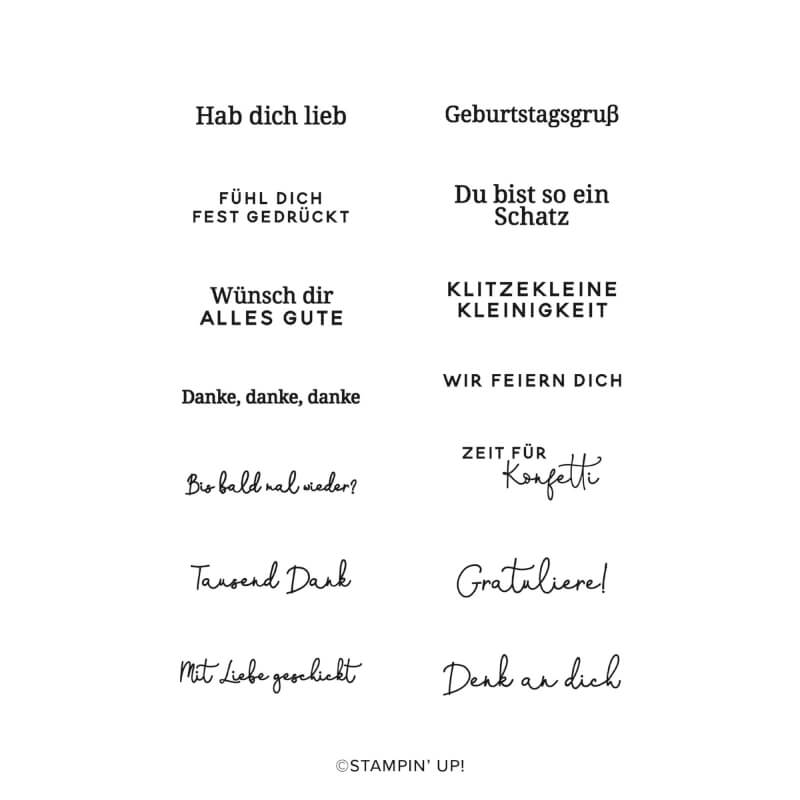 Hab dich lieb
FÜHL DICH
FEST GEDRÜCKT
Wünsch dir
ALLES GUTE
Danke, danke, danke
Bis bald mal wieder?
Tausend Dank
Mit Liebe geschickt
Geburtstagsgruß
Du bist so ein
Schatz
KLITZEKLEINE
KLEINIGKEIT
WIR FEIERN DICH
ZEIT FÜR
Konfetti
Gratuliere!
Denk an dich
©STAMPIN' UP!